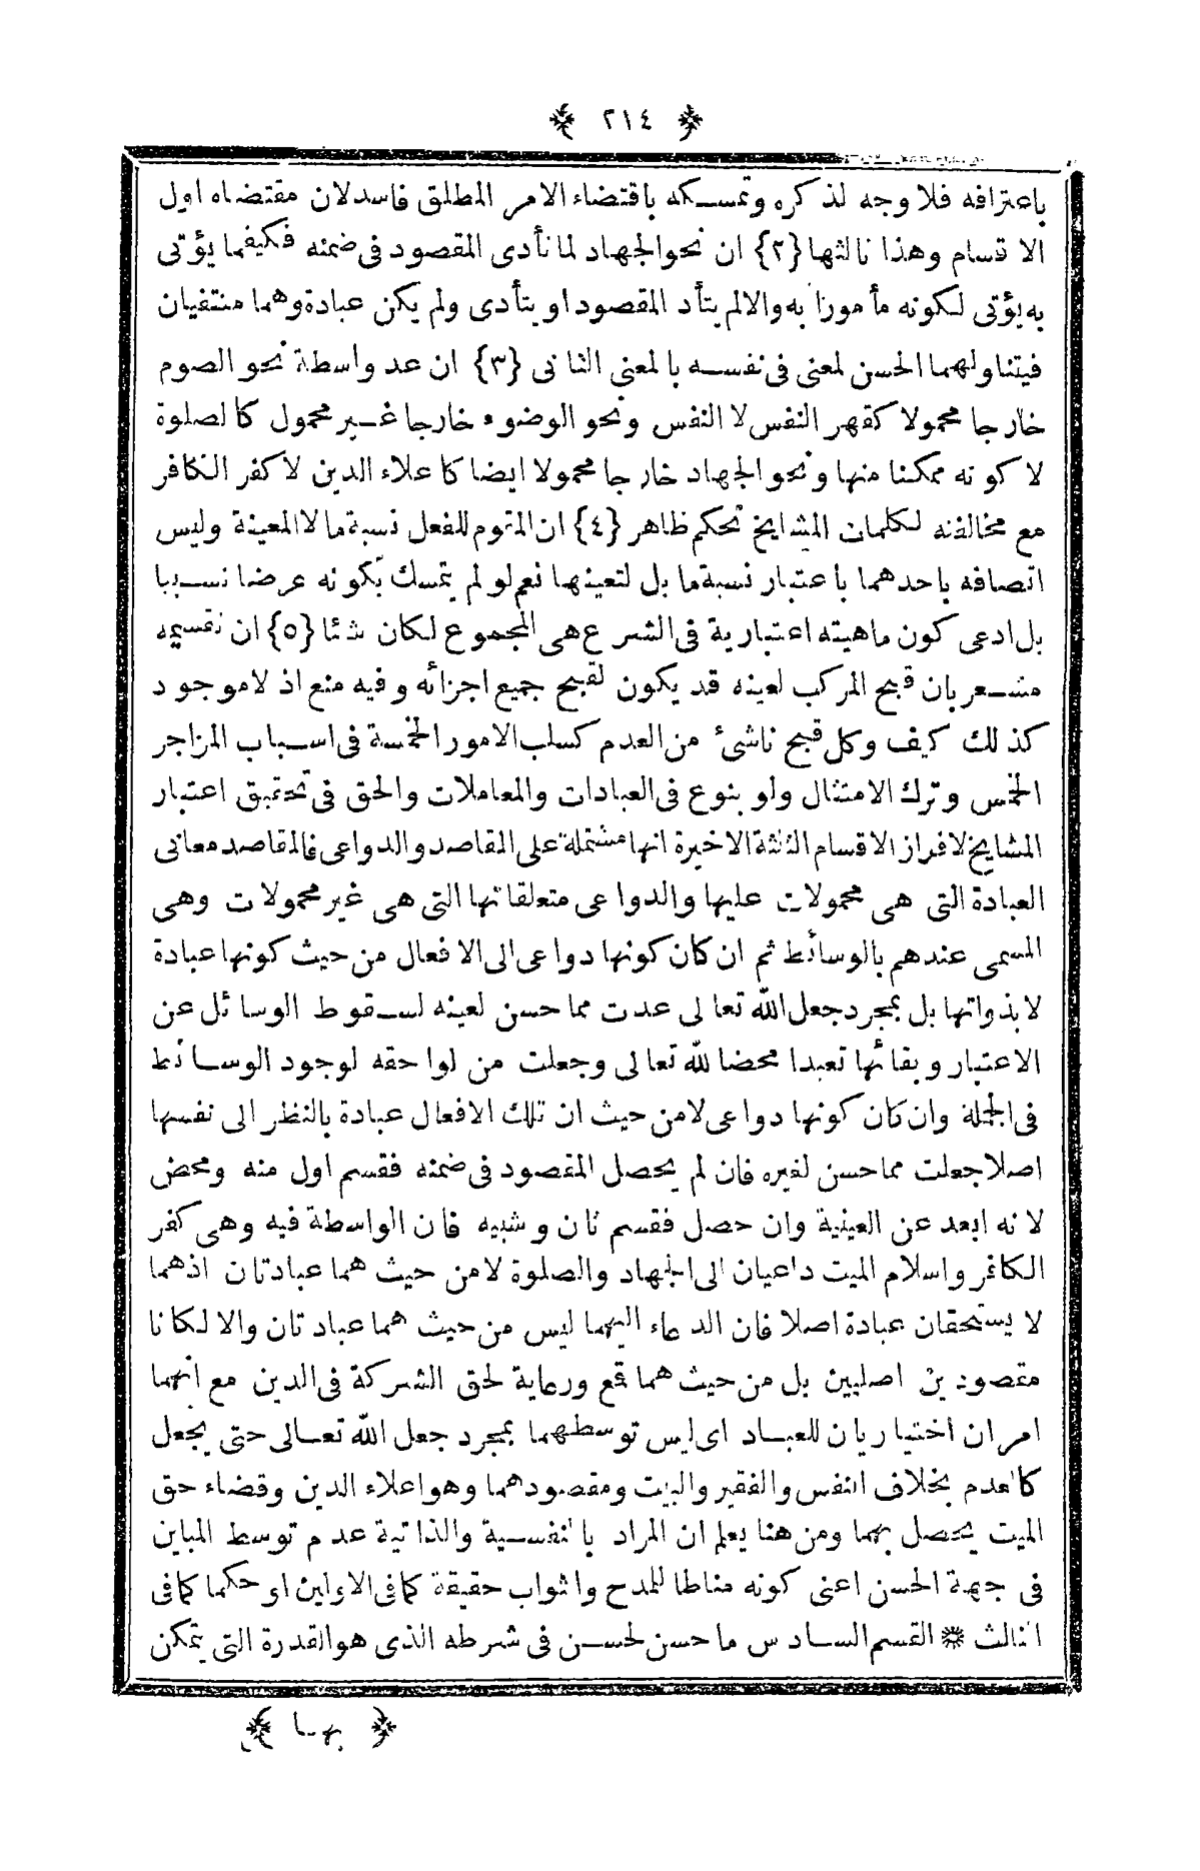 ﴿ ٢١٤ ﴾
باعترافه فلا وجه لذكره وتمسكه باقتضاء الامر المطلق فاسد لان مقتضاه اول
الاقسام وهذا ثالثها {٢} ان نحو الجهاد لما تأدى المقصود فى ضمنه فكيفما يؤتى
به يؤتى لكونه مأمورا به والا لم يتأد المقصود او يتأدى ولم يكن عبادة وهما منتفيان
فيتناولهما الحسن لمعنى فى نفسه بالمعنى الثانى {٣} ان عد واسطة نحو الصوم
خارجا محمولا كقهر النفس لا النفس ونحو الوضوء خارجا غير محمول كالصلوة
لا كونه ممكنا منها ونحو الجهاد خارجا محمولا ايضا كاعلاء الدين لا كفر الكافر
مع مخالفته لكلمات المشايخ تحكم ظاهر {٤} ان المقوم للفعل نسبة ما لا المعينة وليس
اتصافه باحدهما باعتبار نسبة ما بل لتعينها نعم لو لم يتمسك بكونه عرضا نسبيا
بل ادعى كون ماهيته اعتبارية فى الشرع هى المجموع لكان شئا {٥} ان تقسيمه
مشعر بان قبح المركب لعينه قد يكون لقبح جميع اجزائه وفيه منع اذ لا موجود
كذلك كيف وكل قبح ناشئ من العدم كسلب الامور الخمسة فى اسباب المزاجر
الخمس وترك الامتثال ولو بنوع فى العبادات والمعاملات والحق فى تحقيق اعتبار
المشايخ لافراز الاقسام الثلثة الاخيرة انها مشتملة على المقاصد والدواعى فالمقاصد معانى
العبادة التى هى محمولات عليها والدواعى متعلقاتها التى هى غير محمولات وهى
المسمى عندهم بالوسائط ثم ان كان كونها دواعى الى الافعال من حيث كونها عبادة
لا بذواتها بل بمجرد جعل الله تعالى عدت مما حسن لعينه لسقوط الوسائل عن
الاعتبار وبقائها تعبدا محضا لله تعالى وجعلت من لواحقه لوجود الوسائط
فى الجملة وان كان كونها دواعى لا من حيث ان تلك الافعال عبادة بالنظر الى نفسها
اصلا جعلت مما حسن لغيره فان لم يحصل المقصود فى ضمنه فقسم اول منه ومحض
لانه ابعد عن العينية وان حصل فقسم ثان وشبيه فان الواسطة فيه وهى كفر
الكافر واسلام الميت داعيان الى الجهاد والصلوة لا من حيث هما عبادتان اذهما
لا يستحقان عبادة اصلا فان الدعاء اليهما ليس من حيث هما عبادتان والا لكانا
مقصودين اصليين بل من حيث هما قمع ورعاية لحق الشركة فى الدين مع انهما
امران اختياريان للعباد اى ليس توسطهما بمجرد جعل الله تعالى حتى يجعل
كالعدم بخلاف النفس والفقير والبيت ومقصودهما وهو اعلاء الدين وقضاء حق
الميت يحصل بهما ومن هنا يعلم ان المراد بالنفسية والذاتية عدم توسط المباين
فى جهة الحسن اعنى كونه مناطا للمدح والثواب حقيقة كما فى الاولين او حكما كما فى
الثالث ❋ القسم السادس ما حسن لحسن فى شرطه الذى هو القدرة التى يتمكن
﴿ بها ﴾